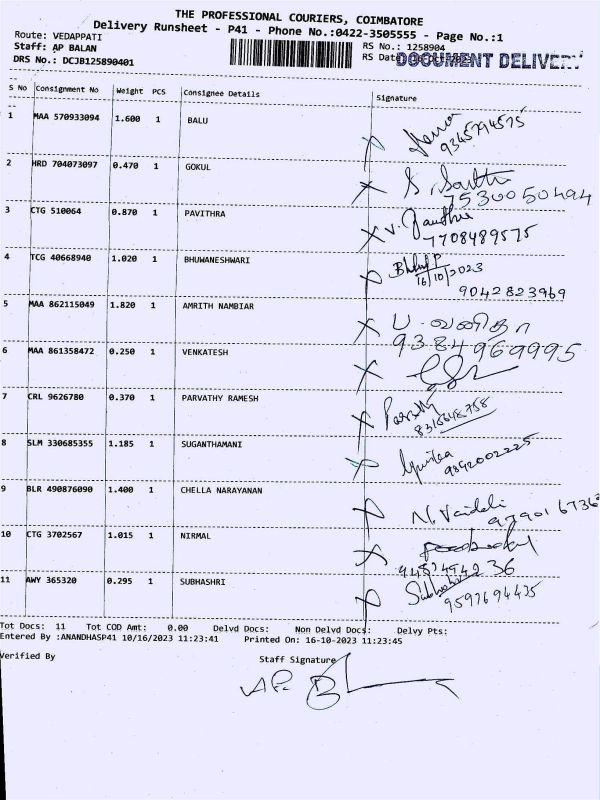 THE PROFESSIONAL COURIERS, COIMBATORE
Delivery Runsheet - P41 - Phone No.:0422-3505555 - Page No.:1
Route: VEDAPPATI
RS No.: 1258904
Staff: AP BALAN
RS Date
DOCUMENT DELIVERY
DRS No.: DCJB125890401
S No Consignment No Weight PCS Consignee Details Signature
1 MAA 570933094 1.600 1 BALU
9345794575
2 HRD 704073097 0.470 1 GOKUL
7530050494
3 CTG 510064 0.870 1 PAVITHRA
7708489575
4 TCG 40668940 1.020 1 BHUWANESHWARI
16/10/2023
9042823969
5 MAA 862115049 1.820 1 AMRITH NAMBIAR
ப. வனிதா
9384969995
6 MAA 861358472 0.250 1 VENKATESH
7 CRL 9626780 0.370 1 PARVATHY RAMESH
8 SLM 330685355 1.185 1 SUGANTHAMANI
9892002225
9 BLR 490876090 1.400 1 CHELLA NARAYANAN
10 CTG 3702567 1.015 1 NIRMAL
11 AWY 365320 0.295 1 SUBHASHRI
Tot Docs: 11 Tot COD Amt: 0.00 Delvd Docs: Non Delvd Docs: Delvy Pts:
Entered By :ANANDHASP41 10/16/2023 11:23:41 Printed On: 16-10-2023 11:23:45
Verified By
Staff Signature